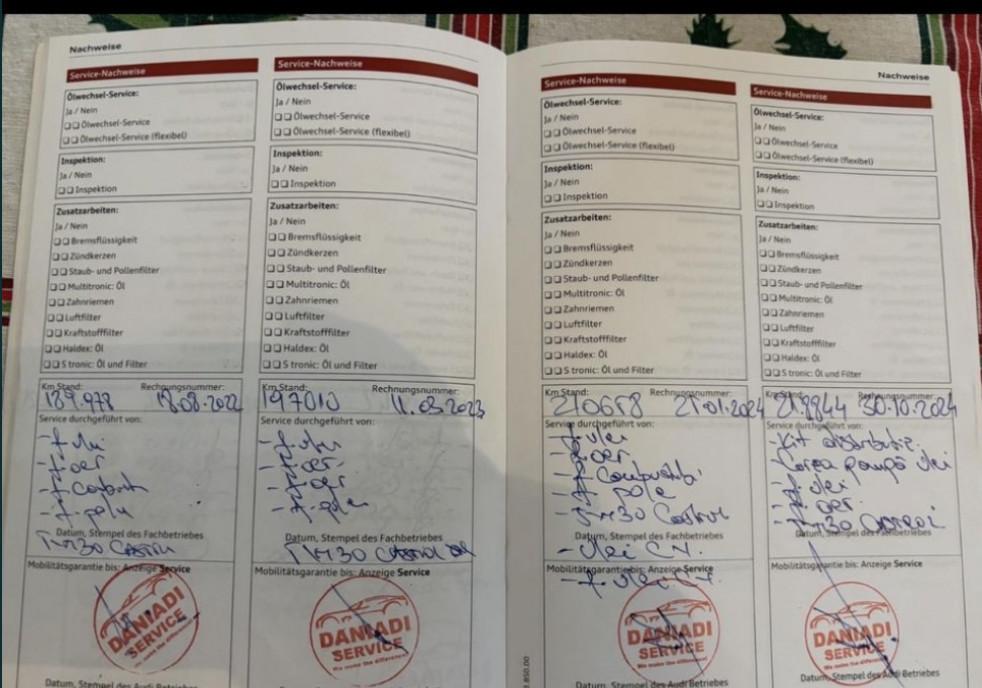 Nachweise
Service-Nachweise
Ölwechsel-Service:
Ja / Nein
Ölwechsel-Service
Ölwechsel-Service (flexibel)
Inspektion:
Ja / Nein
Inspektion
Zusatzarbeiten:
Ja / Nein
Bremsflüssigkeit
Zündkerzen
Staub- und Pollenfilter
Multitronic: Öl
Zahnriemen
Luftfilter
Kraftstofffilter
Haldex: Öl
S tronic: Öl und Filter
Km Stand: Rechnungsnummer:
189.978 18.08.2022
Service durchgeführt von:
- f. ulei
- f. aer
- f. polen
Datum, Stempel des Fachbetriebes
5W30 Castrol
Mobilitätsgarantie bis: Anzeige Service
DANIADI
SERVICE
We make the difference!
Datum, Stempel des Audi Betriebes
Service-Nachweise
Ölwechsel-Service:
Ja / Nein
Ölwechsel-Service
Ölwechsel-Service (flexibel)
Inspektion:
Ja / Nein
Inspektion
Zusatzarbeiten:
Ja / Nein
Bremsflüssigkeit
Zündkerzen
Staub- und Pollenfilter
Multitronic: Öl
Zahnriemen
Luftfilter
Kraftstofffilter
Haldex: Öl
S tronic: Öl und Filter
Km Stand: Rechnungsnummer:
197010 11.03.2023
Service durchgeführt von:
- f. ulei
- f. aer
- f. aer
- f. polen
Datum, Stempel des Fachbetriebes
5W30 Castrol
Mobilitätsgarantie bis: Anzeige Service
DANIADI
SERVICE
We make the difference!
Datum, Stempel des Audi Betriebes
Nachweise
Service-Nachweise
Ölwechsel-Service:
Ja / Nein
Ölwechsel-Service
Ölwechsel-Service (flexibel)
Inspektion:
Ja / Nein
Inspektion
Zusatzarbeiten:
Ja / Nein
Bremsflüssigkeit
Zündkerzen
Staub- und Pollenfilter
Multitronic: Öl
Zahnriemen
Luftfilter
Kraftstofffilter
Haldex: Öl
S tronic: Öl und Filter
Km Stand: Rechnungsnummer:
210658 21.01.2024
Service durchgeführt von:
- f. ulei
- f. aer
- f. Combustibil
- f. pole
- 5W30 Castrol
Datum, Stempel des Fachbetriebes
- Ulei C.V.
Mobilitätsgarantie bis: Anzeige Service
- f. ulei C.V.
DANIADI
SERVICE
We make the difference!
Datum, Stempel des Audi Betriebes
Service-Nachweise
Ölwechsel-Service:
Ja / Nein
Ölwechsel-Service
Ölwechsel-Service (flexibel)
Inspektion:
Ja / Nein
Inspektion
Zusatzarbeiten:
Ja / Nein
Bremsflüssigkeit
Zündkerzen
Staub- und Pollenfilter
Multitronic: Öl
Zahnriemen
Luftfilter
Kraftstofffilter
Haldex: Öl
S tronic: Öl und Filter
Km Stand: Rechnungsnummer:
218844 30.10.2024
Service durchgeführt von:
- Kit distributie.
- Curea pompă ulei
- f. ulei
- f. aer
- 5W30 Castrol
Datum, Stempel des Fachbetriebes
Mobilitätsgarantie bis: Anzeige Service
DANIADI
SERVICE
We make the difference!
Datum, Stempel des Audi Betriebes